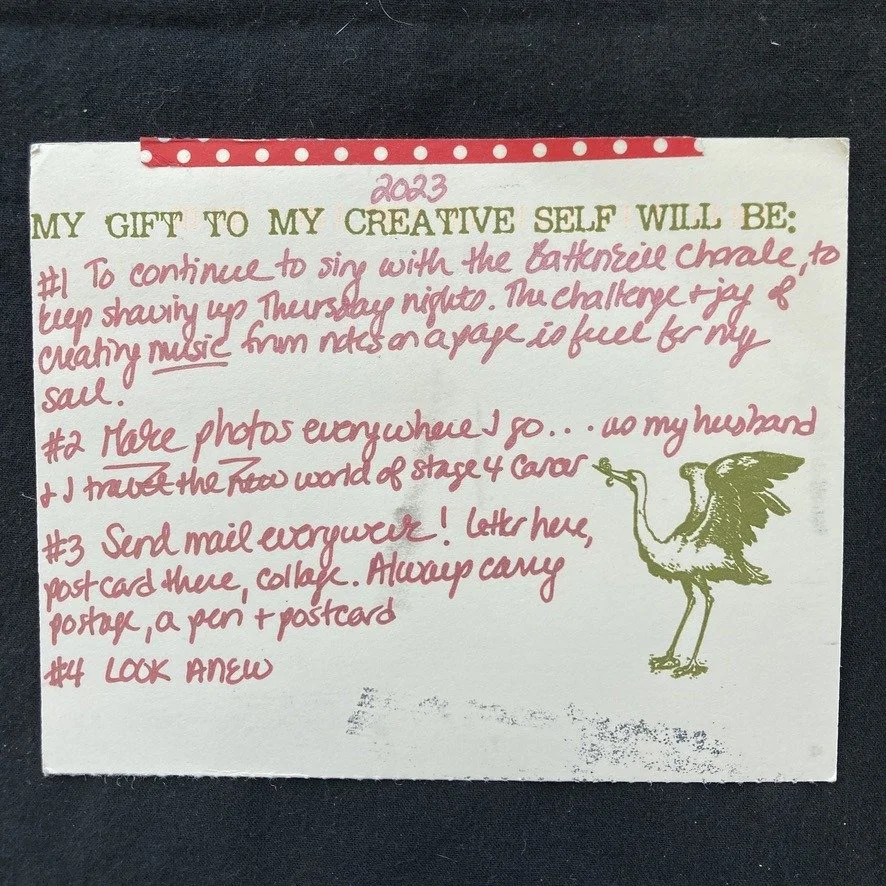 2023
MY GIFT TO MY CREATIVE SELF WILL BE:
#1 To continue to sing with the Battenkill Chorale, to
keep showing up Thursday nights. The challenge + joy of
creating music from notes on a page is fuel for my
soul.
#2 Make photos everywhere I go... as my husband
+ I travel the new world of stage 4 cancer
#3 Send mail everywere! Letter here,
postcard there, collage. Always carry
postage, a pen + postcard
#4 LOOK ANEW